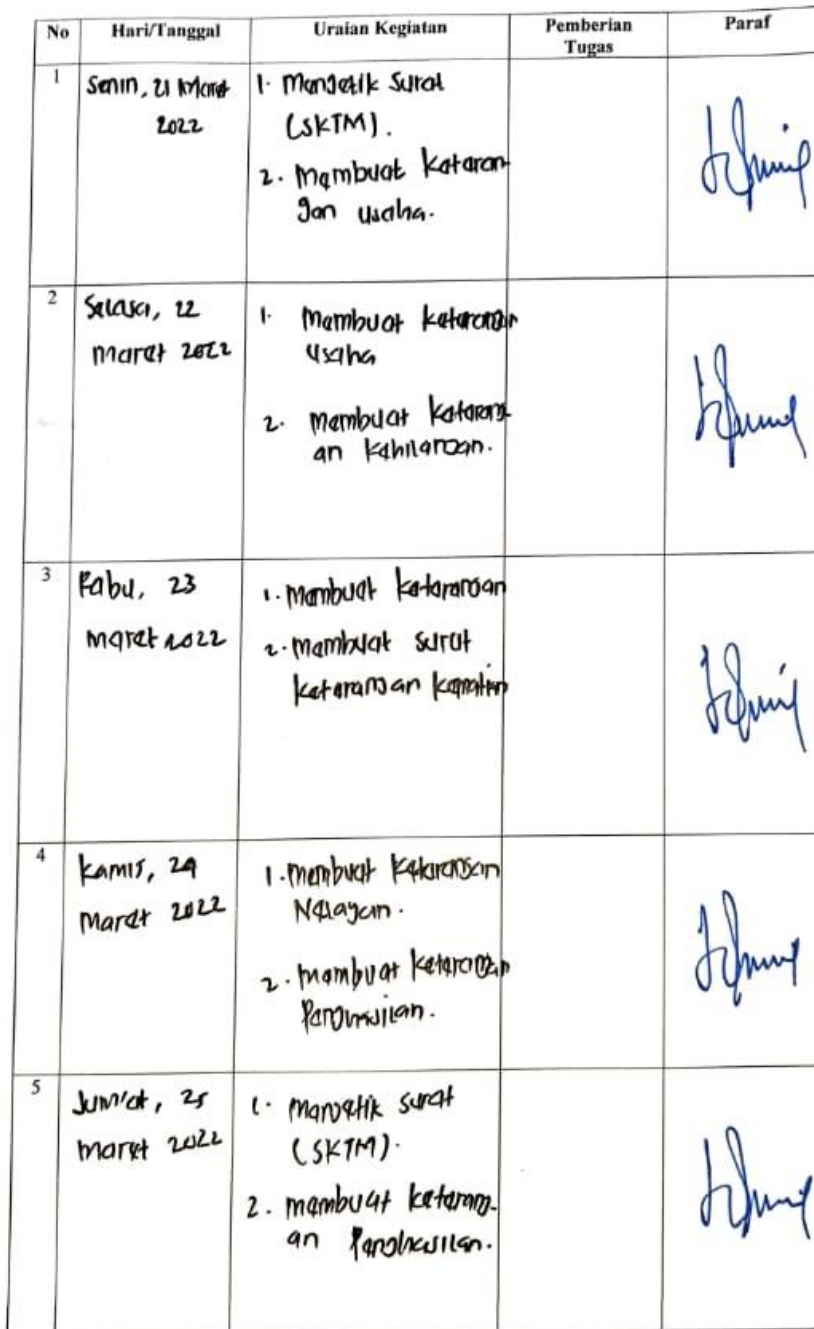 No Hari/Tanggal Uraian Kegiatan Pemberian Tugas Paraf
1
Senin, 21 Maret
2022
1. Mengetik Surat
(SKTM).
2. Membuat Keteran
gan usaha.
2
Selasa, 22
Maret 2022
1. Membuat keterangan
usaha
2. Membuat keterang-
an kehilangan.
3
Rabu, 23
Maret 2022
1. Membuat keterangan
2. membuat surat
keterangan kematian
4
Kamis, 24
Maret 2022
1. membuat keterangan
Nelayan.
2. membuat keterangan
Penghasilan.
5
Jum'at, 25
Maret 2022
1. Mengetik surat
(SKTM).
2. membuat keterang-
an Penghasilan.